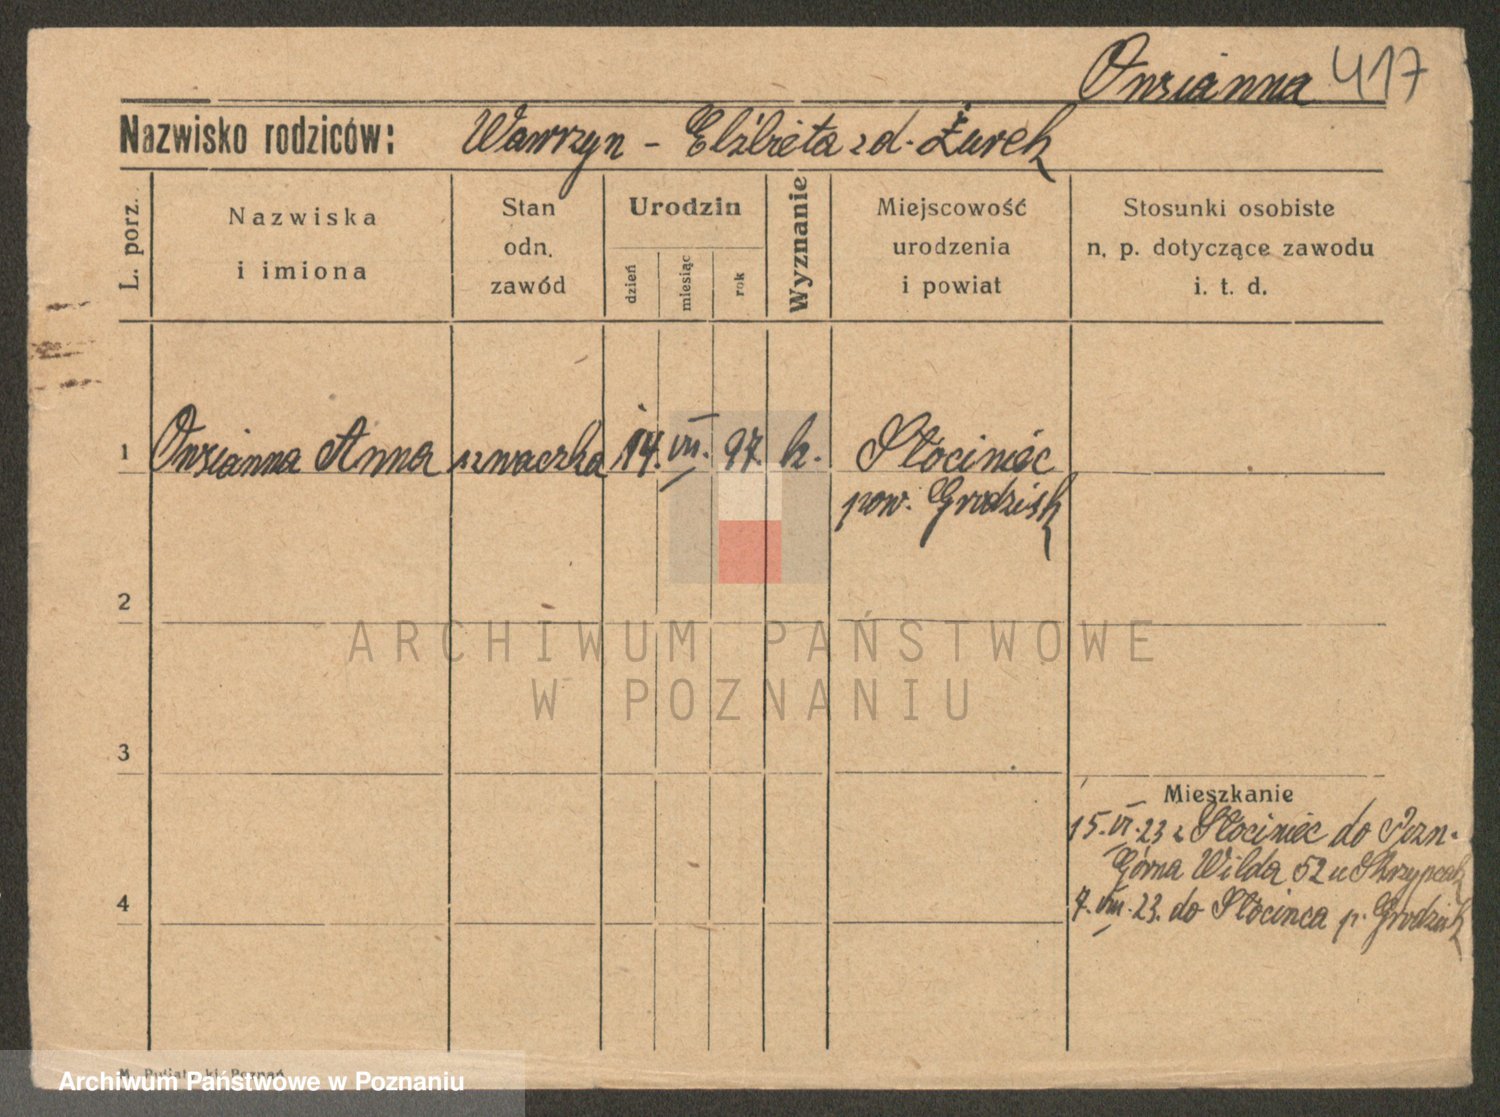 Owsianna 417
Nazwisko rodziców: Wawrzyn - Elżbieta zd. Żurek
L. porz.
Nazwiska
i imiona
Stan
odn.
zawód
Urodzin
dzień
miesiąc
rok
Wyznanie
Miejscowość
urodzenia
i powiat
Stosunki osobiste
n. p. dotyczące zawodu
i. t. d.
1 Owsianna Anna szwaczka 14. VII. 97. k. Słociniec
pow. Grodzisk
2
ARCHIWUM PAŃSTWOWE
W POZNANIU
3
Mieszkanie
15. VI. 23 z Słociniec do Pozn.
Górna Wilda 52 u Skrzypczak
4
7. VIII. 23. do Słocinca p. Grodzisk
Poznań
Archiwum Państwowe w Poznaniu